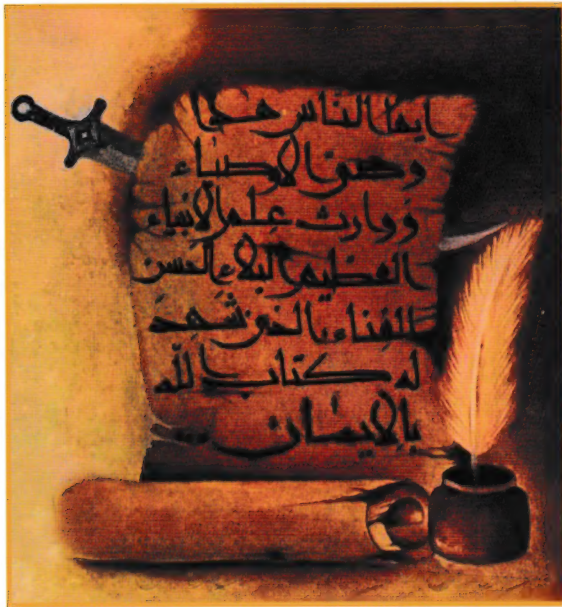 ايها الناس هذا
وصي الاوصياء
ووارث علم الانبياء
العظيم البلاء الحسن
الغناء الذي شَهِدَ
له كتاب الله
بالإيمان ...